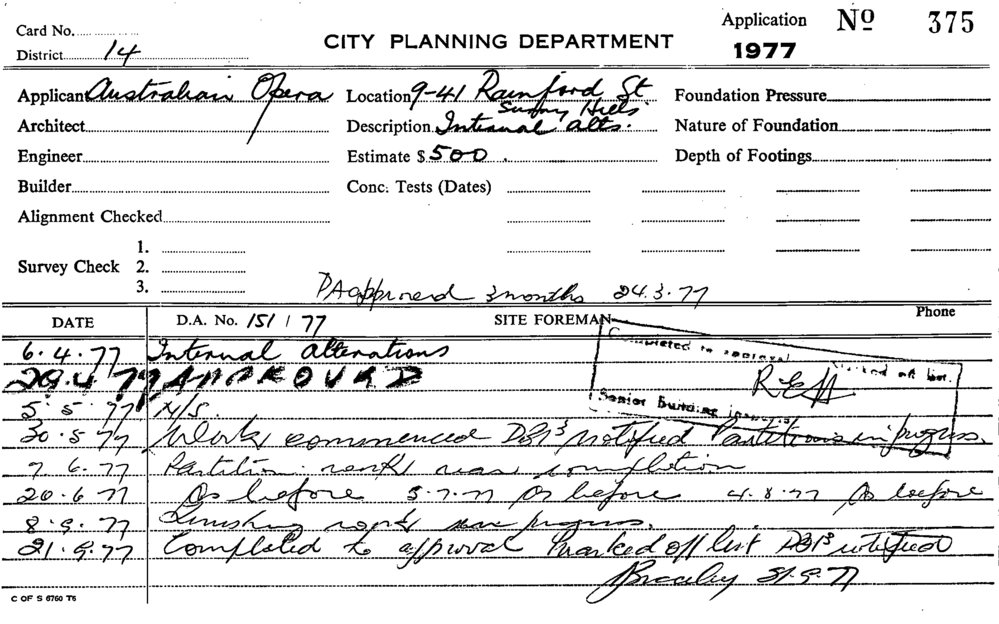 Card No.
District 14
CITY PLANNING DEPARTMENT
Application Nº 375
1977
Applicant Australian Opera
Location 9-41 Rainford St
Surry Hills
Foundation Pressure
Architect
Description Internal alts.
Nature of Foundation
Engineer
Estimate $ 500
Depth of Footings
Builder
Conc. Tests (Dates)
Alignment Checked
Survey Check
1.
2.
3.
DA approved 3 months 24.3.77
DATE
D.A. No. 151 / 77
SITE FOREMAN
Phone
6.4.77 Internal alterations
29.4.77 APPROVED
Completed to approval
Marked off list.
Senior Building Inspector
5.5.77 N/S.
30.5.77 Work commenced DBI³ notified Partitions in progress.
7.6.77 Partition work near completion
20.6.77 As before 5.7.77 As before 4.8.77 As before
8.9.77 Finishing work in progress.
21.9.77 Completed to approval Marked off list notified
21.9.77
C OF S 6760 T6